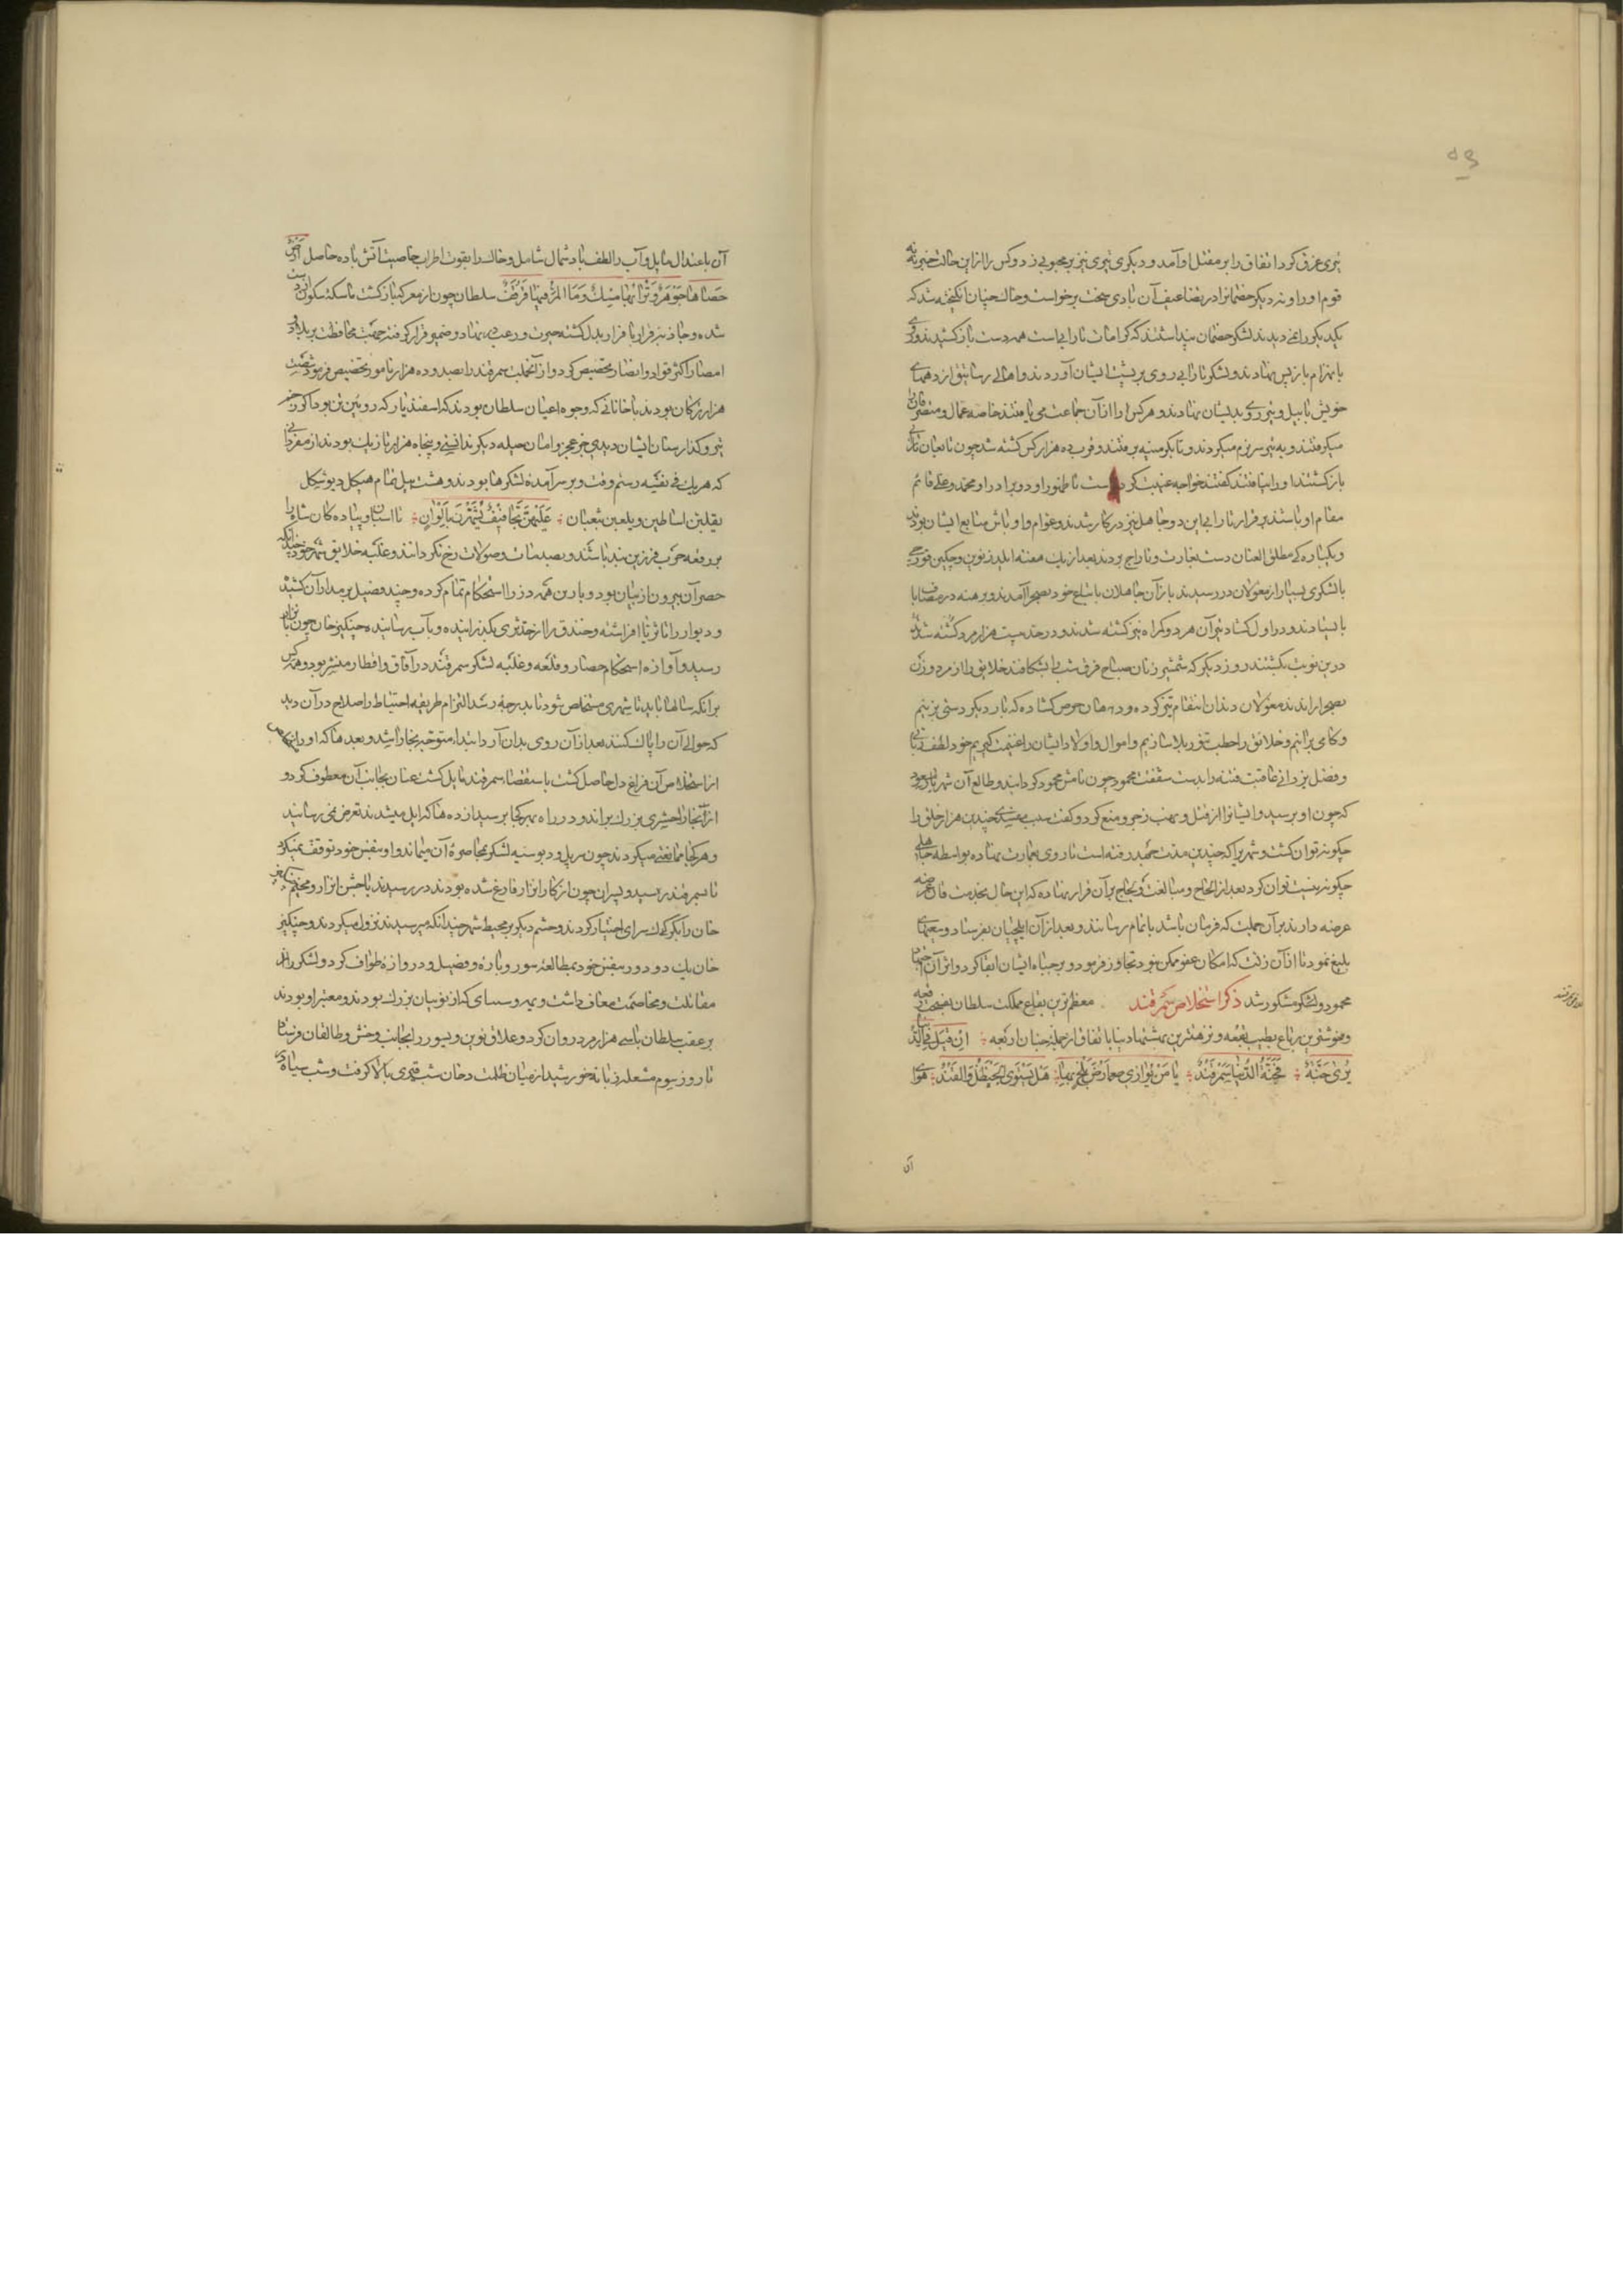 ۵۳
تیری غرق کرد اتفاق را بر مقتل او آمد و دیگری تیری نیز بر محبوبی زد و کس را از این حالت خبر نه
قوم او را و نه دیگر خصمانرا در تضاعیف آن بادی سخت برخواست و خاک چنان انگیخته شد که
یکدیگر را نمی دیدند لشکر خصمان پنداشتند که کرامات تارابی است همه دست باز کشیدند و روی
بانهزام باز پس نهادند و لشکر تارابی روی بر پشت ایشان آوردند و اهالی رساتیق از دیههای
خویش با بیل و تبر روی بدیشان نهادند و هر کس را از آن جماعت می یافتند خاصه عمال و متصرفان را
میگرفتند و به تبر سر نرم میکردند و تا بکرمینه برفتند و قرب ده هزار کس کشته شد چون تابعان تارابی
باز گشتند او را نیافتند گفتند خواجه غیبت کرده است تا ظهور او دو برادر او محمد و علی قائم
مقام او باشند بر قرار تارابی این دو جاهل نیز در کار شدند و عوام و اوباش متابع ایشان بودند
و یکباره کی مطلق العنان دست بغارت و تاراج بردند بعد از یک هفته ایلدز نوین و چکین قورچی
با لشکری بسیار از مغولان در رسیدند باز آن جاهلان با اتباع خود بصحرا آمدند و برهنه در مصاف
بایستادند و در اول گشاد تیر آن هر دو گمراه نیز کشته شدند و در حد بیست هزار مرد کشته شدند
درین نوبت بکشتند روز دیگر که شمشیر زنان صباح فرق شب را بشکافتند خلایق را از مرد و زن
بصحرا راندند مغولان دندان انتقام تیز کرده و دهان حرص گشاده که بار دیگر دستی بزنیم
و کامی برانیم و خلایق را حطب تنور بلا سازیم و اموال و اولاد ایشان را غنیمت گیریم خود لطف ربانی
و فضل یزدانی عاقبت فتنه را بدست شفقت محمود چون نامش محمود گردانید و طالع آن شهر باز مسعود
که چون او برسید و ایشانرا از قتل و نهب زجر و منع کرد و گفت سبب مفسدی چندین هزار خلق را
چگونه توان کشت و شهری را که چندین مدت جهد رفته است تا روی بعمارت نهاده بواسطه جاهلی
چگونه نیست توان کرد بعد از الحاح و مبالغت و لجاج بر آن قرار نهاده که این حال بخدمت قاآن عرضه
عرضه دارند بر آن جملت که فرمان باشد باتمام رسانند و بعد از آن ایلچیان بفرستاد و سعیهای
بلیغ نمود تا از آن زلت که امکان عفو ممکن نبود تجاوز فرمود و بر حیات ایشان ابقا کرد و اثر آن اجتهاد
محمود و لشکر مشکور شد ذکر استخلاص سمرقند معظم ترین بقاع مملکت سلطان بفسحت رقعه
و خوشترین رباع بطیب بقعه و نزهترین بهشتهاء دنیا باتفاق از جمله جنان اربعه ان قیل فی الدنیا
یری جنة فجنة الدنیا سمرقند یا من یوازی ارض بلخ بها هل یستوی الحنظل والقند هوای
آن
آن باعتدال مایل و آب را لطف باد شمال شامل و خاک را بقوت اطراب خاصیت آتش باده حاصل ارض
حصاها جوهر و ترابها مسک و ماء المد فیها قرقف سلطان چون از معرکه باز گشت تماسک سکون از دست
شده و جاذبه فرار با قرار بدل گشته حیرت و رعب در نهاد و ضمیر قرار گرفته جهت محافظت بر بلاد و
امصار اکثر قواد و انصار تخصیص کرد و از آنجملت سمرقند را بصد و ده هزار نامور تخصیص فرمود شصت
هزار ترکان بودند با خانانی که وجوه اعیان سلطان بودند که اسفندیار که رویین تن بود اگر زخم
تیر و گذار سنان ایشان دیدی جز عجز و امان حیله دیگر ندانستی و پنجاه هزار تازیک بودند از مفردانی
که هر یک فی نفسه رستم وقت و بر سر آمده لشکرها بودند و هشت پیل تمام هیکل دیو شکل
یقلبن اساطین و یلعبن بثعبان علیهن تجافیف یشهرن بالوان تا اسبان و پیاده گان شاه را
بر رقعه حرب فرزین بند باشند و بصدمات و صولات رخ نگردانند و غلبه خلایق شهر خود چندانکه
حصر آن بیرون از بیان بود و با این همه دزرا استحکام تمام کرده و چند فصیل بر مدار آن کشیده
و دیوار را تا ثریا افراشته و خندق را از حد ثری بگذرانیده و بآب رسانیده چنکیز خان چون باترار
رسید و آوازه استحکام حصار و قلعه و غلبه لشکر سمرقند در آفاق و اقطار منتشر بود و همه کس
بر آنکه سالها باید تا شهری مستخلص شود تا بدرجه رسد التزام طریقه احتیاط را صلاح در آن دید
که حوالی آن را پاک کنند بعد از آن روی بدان آرد ابتدا متوجه بخارا شد و بعد ما که او را
از استخلاص آن فراغ دل حاصل گشت باستقصاء سمرقند مایل گشت عنان بجانب آن معطوف کرد و
از آنجا راحشری بزرگ براند و در راه بهر کجا برسید از دهها که ایل میشدند تعرض نمی رسانید
و هر کجا ممانعتی میکردند چون سرپل و دبوسیه لشکر بمحاصره آن میماند و او بنفس خود توقف نمیکرد
تا بسمرقند رسید و پسران چون از کار اترار فارغ شده بودند در رسیدند با حشر اترار و مخیم چنکیز
خان را بکوک سرای اختیار کردند و حشم دیگر بر محیط شهر چندانکه میرسیدند نزول میکردند و چنکیز
خان یک دو دور بنفس خود بمطالعه سور و باره و فصیل و دروازه طواف کرد و لشکر را از
مقاتلت و مخاصمت معاف داشت و یمه و سبتای که از نوینان بزرگ بودند و معتبر او بودند
بر عقب سلطان با سی هزار مرد روان کرد و غلاق نوین و یسور را بجانب وخش و طالقان فرستاد
تا روز سیوم مشعله زبانه خورشید از میان ظلمت دخان شب قیری بالا گرفت و شب سیاه